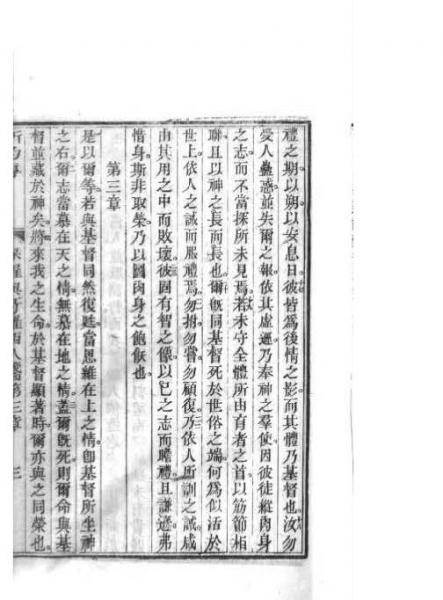 禮之期以朔以安息日彼皆爲後情之影而其體乃基督也汝勿
受人蠱惑並失爾之報依其虛遜乃奉神之羣使因彼徒縱肉身
之志而不當探所未見焉若未守全體所由有者之首以筋節相
聯且以神之長而長也爾旣同基督死於世俗之端何爲似活於
世上依人之誡而服禮焉勿捫勿嘗勿顧復乃依人所訓之誡咸
由其用之中而敗壞彼固有智之像以己之志而瞻禮且謙遜弗
惜身斯非取榮乃以圖肉身之飽飫也
第三章
是以爾等若與基督同然復甦當思維在上之情卽基督所坐神
之右爾志當慕在天之情無慕在地之情蓋爾旣死則爾命與基
督並藏於神矣將來我之生命於基督顯著時爾亦與之同榮也
人書第三章 三